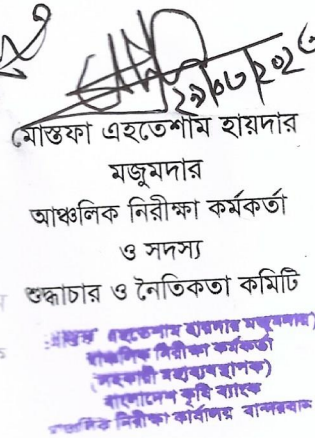 ২৯/০৮/২০২৩
মোস্তফা এহতেশাম হায়দার
মজুমদার
আঞ্চলিক নিরীক্ষা কর্মকর্তা
ও সদস্য
শুদ্ধাচার ও নৈতিকতা কমিটি
এহতেশাম হায়দার মজুমদার)
আঞ্চলিক নিরীক্ষা কর্মকর্তা
(সহকারী মহাব্যবস্থাপক)
বাংলাদেশ কৃষি ব্যাংক
আঞ্চলিক নিরীক্ষা কার্যালয় বান্দরবান